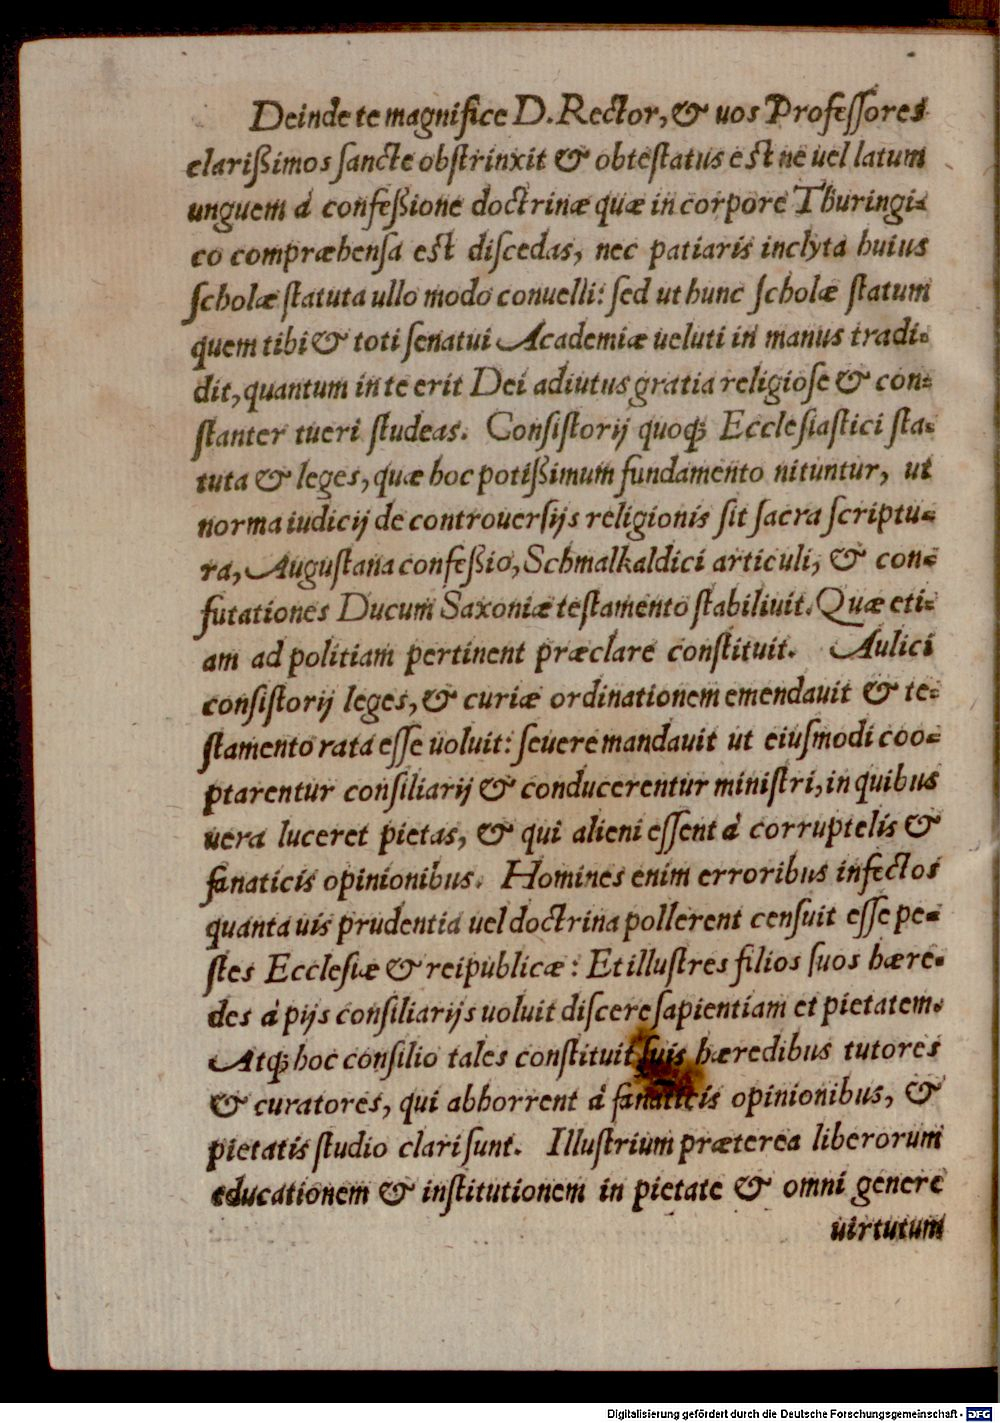 Deinde te magnifice D. Rector, & uos Professores
clarißimos sancte obstrinxit & obtestatus est ne uel latum
unguem á confeßione doctrinæ quæ in corpore Thuringi-
co compræhensa est discedas, nec patiaris inclyta huius
scholæ statuta ullo modo conuelli: sed ut hunc scholæ statum
quem tibi & toti senatui Academiæ ueluti in manus tradi-
dit, quantum in te erit Dei adiutus gratia religiose & con-
stanter tueri studeas. Consistorij quoq; Ecclesiastici sta-
tuta & leges, quæ hoc potißimum fundamento nituntur, ut
norma iudicij de controuersijs religionis sit sacra scriptu-
ra, Augustana confeßio, Schmalkaldici articuli, & con-
futationes Ducum Saxoniæ testamento stabiliuit. Quæ eti-
am ad politiam pertinent præclare constituit. Aulici
consistorij leges, & curiæ ordinationem emendauit & te-
stamento rata esse uoluit: seuere mandauit ut eiusmodi coo-
ptarentur consiliarij & conducerentur ministri, in quibus
uera luceret pietas, & qui alieni essent á corruptelis &
fanaticis opinionibus. Homines enim erroribus infectos
quanta uis prudentia uel doctrina pollerent censuit esse pe-
stes Ecclesiæ & reipublicæ: Et illustres filios suos hære-
des á pijs consiliarijs uoluit discere sapientiam et pietatem.
Atq; hoc consilio tales constituit suis hæredibus tutores
& curatores, qui abhorrent á fanaticis opinionibus, &
pietatis studio clari sunt. Illustrium præterea liberorum
educationem & institutionem in pietate & omni genere
uirtutum
Digitalisierung gefördert durch die Deutsche Forschungsgemeinschaft - DFG